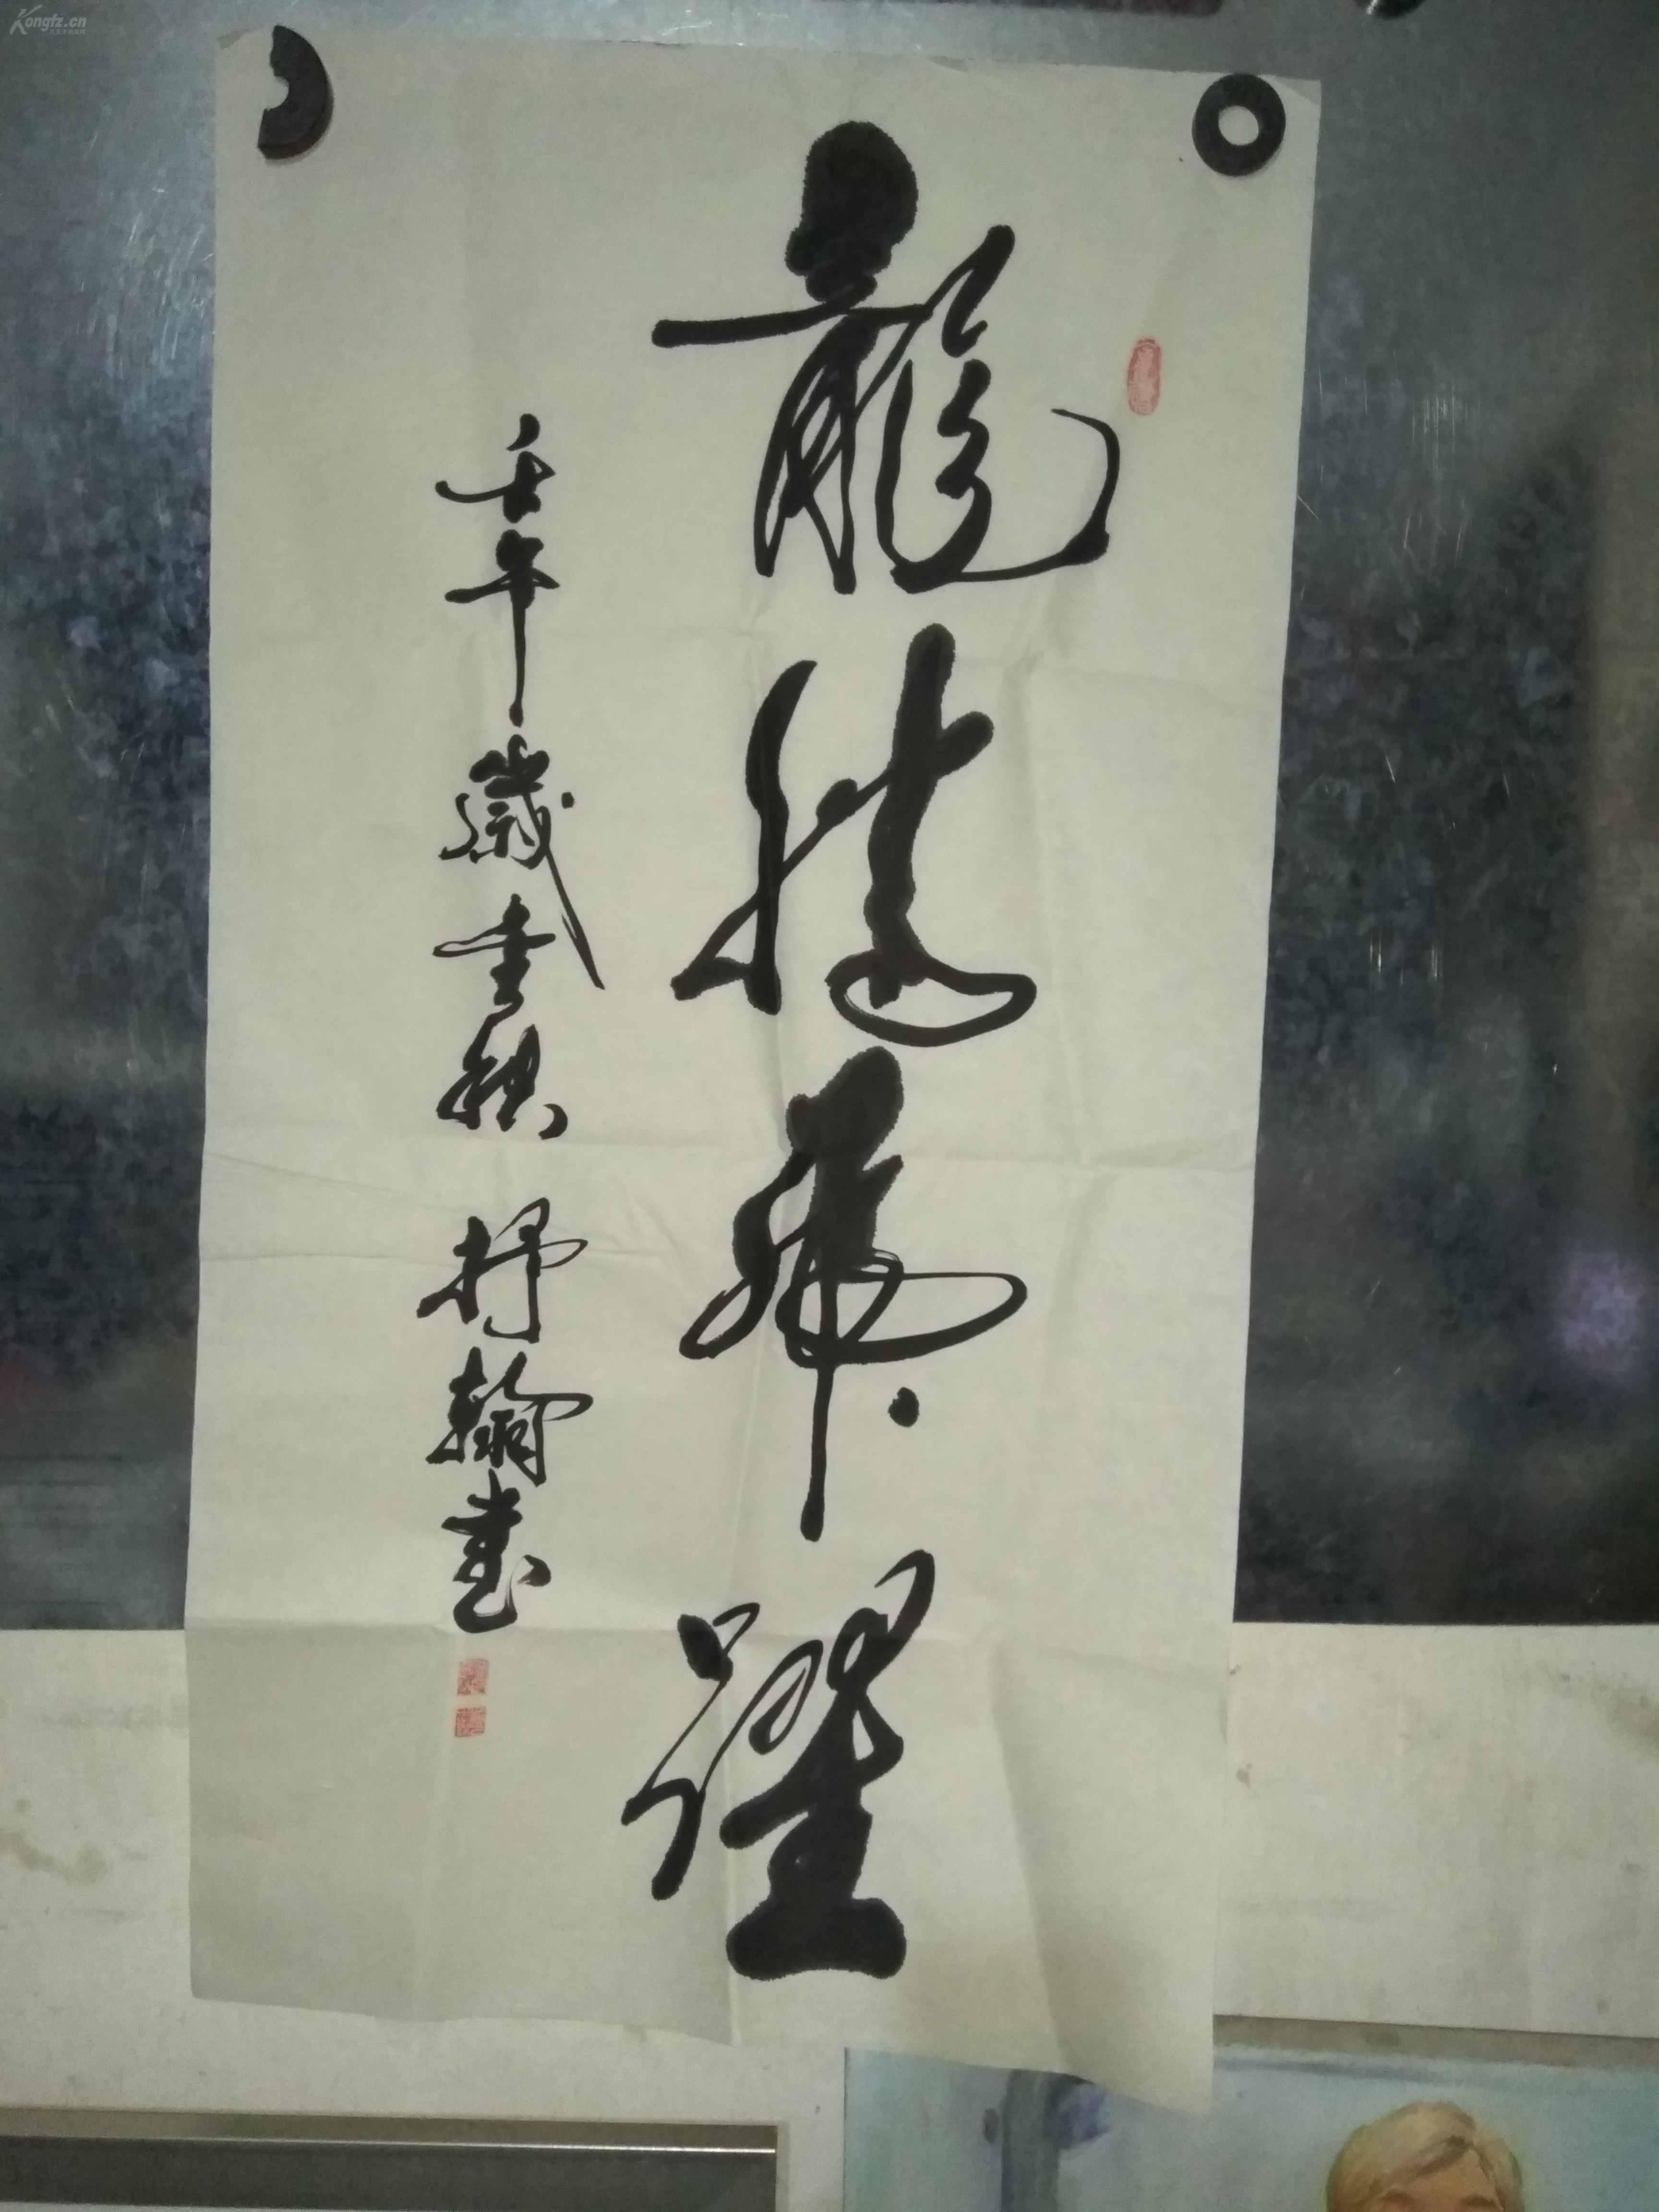 龍騰虎躍
壬午歲重秋 抒翰書
Kongfz.cn